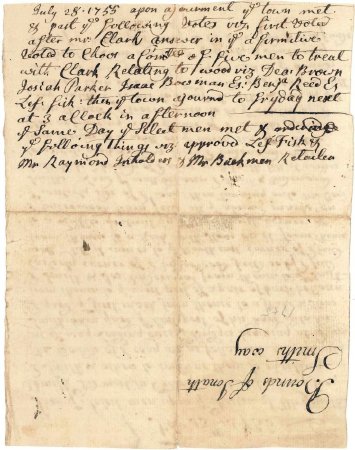 July 28: 1755 upon ajournment yͤ town met
& past yͤ following Votes viz first Voted
after mr Clark answer in yͤ afirmitive
Voted to Choos a Comtee of five men to treat
with Clark Relating to wood viz Dea: Brown
Josiah Parker Isaac Bowman Es: Benjᵃ Reed Es
Lef. Fisk: then yͤ town ajournd to fryday next
at 3 a Clock in afternoon
yͤ Same Day yͤ Select men met &
yͤ following things viz approved Lef Fisk &
Mr Raymond Inholders & Mr Buckman Retailer
Bounds of Jonath
Smiths way